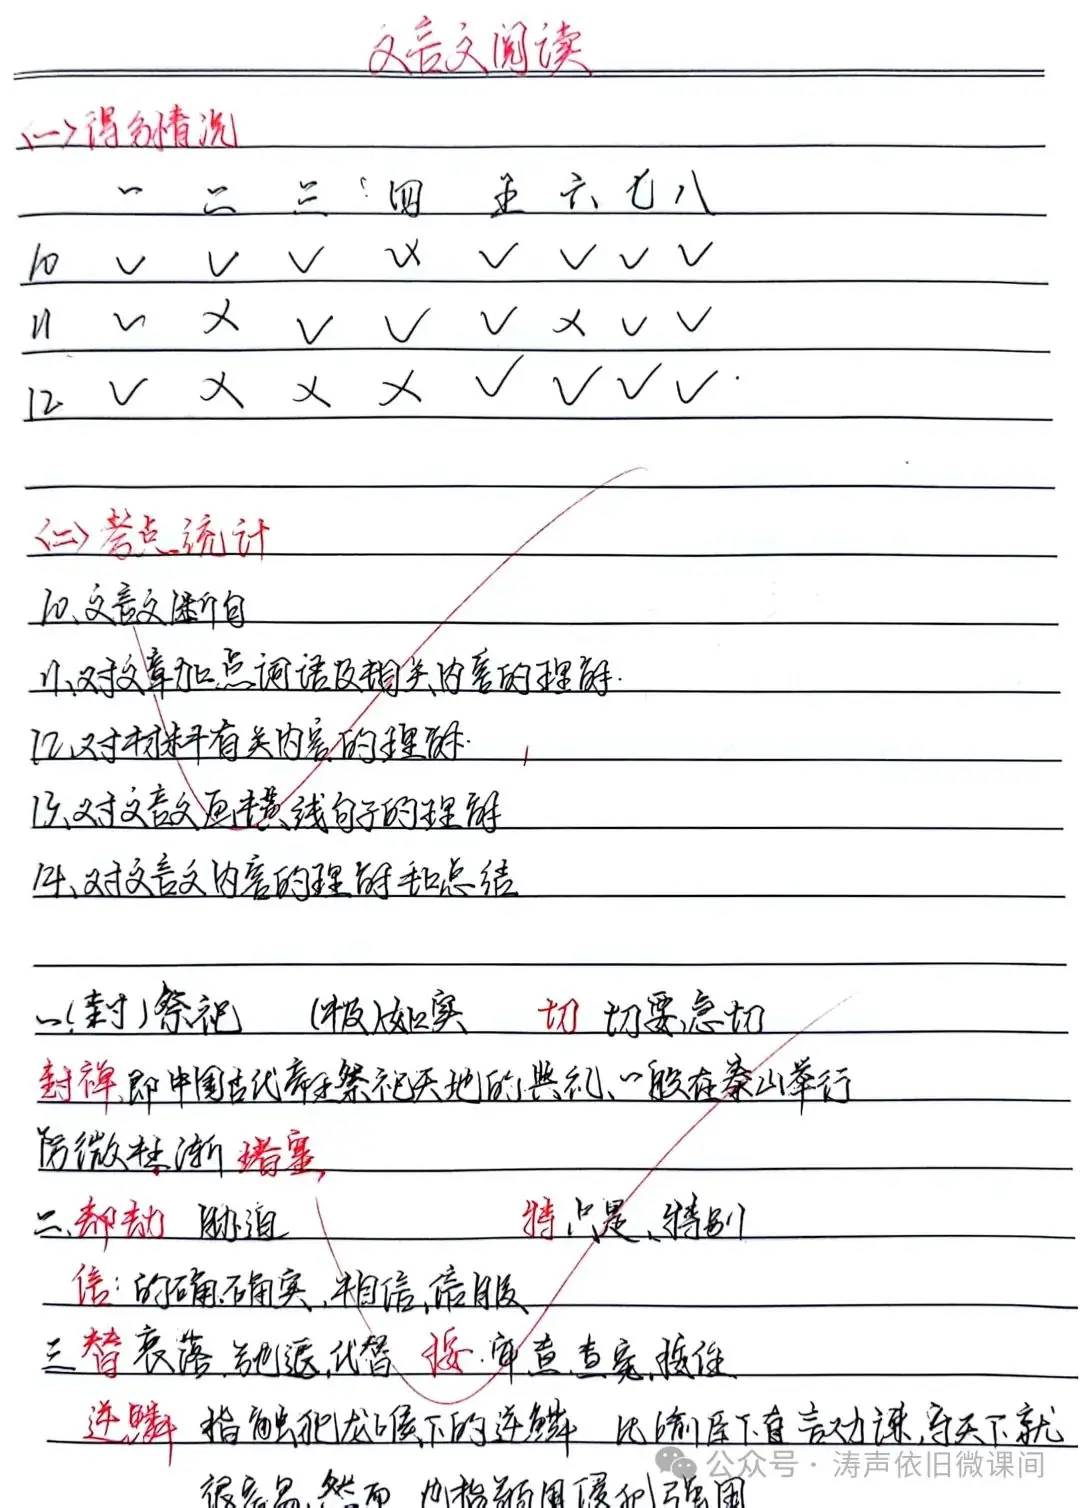 文言文阅读
(一)得分情况
一 二 三 四 五 六 七 八
10 ✓ ✓ ✓ ✗ ✓ ✓ ✓ ✓
11 ✓ ✗ ✓ ✓ ✓ ✗ ✓ ✓
12 ✓ ✗ ✗ ✗ ✓ ✓ ✓ ✓
(二)考点统计
10、文言文断句
11、对文章加点词语及相关内容的理解.
12、对材料有关内容的理解.
13、对文言文画横线句子的理解
14、对文言文内容的理解和总结
一、(封)祭祀 (报)如实 切 切要、急切
封禅、即中国古代帝王祭祀天地的典礼、一般在泰山举行
防微杜渐 堵塞
二、却劫 胁迫 特 只是、特别
信:的确、确实、相信、信服
三 替 衰落、弛退、代替 按:审查、查究、按住
逆鳞 指触犯龙喉下的逆鳞 比喻臣下直言劝谏,守天下就
很容易,然而 也指弱国侵犯强国
公众号·涛声依旧微课间